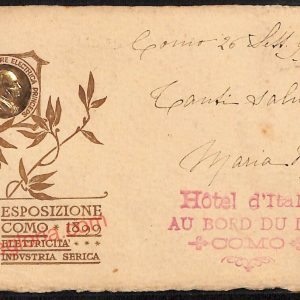 RE ELECTRICA PRINCEPS
ESPOSIZIONE
COMO · 1899
ELETTRICITA'
INDVSTRIA SERICA
Como 26 Sett. 9
Tanti salu
Maria
Hôtel d'Ital
AU BORD DU L
COMO